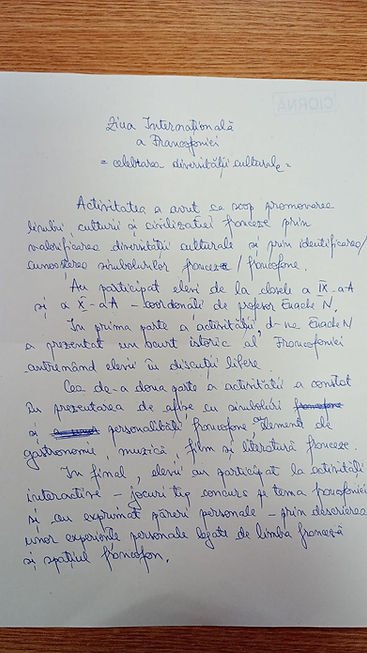 CIORNĂ
Ziua Internațională
a Francofoniei
- celebrarea diversității culturale -
Activitatea a avut ca scop promovarea
limbii, culturii și civilizației franceze prin
valorificarea diversității culturale și prin identificarea/
cunoașterea simbolurilor franceze/francofone.
Au participat elevi de la clasele a IX-a A
și a X-a A - coordonați de profesor Enache N.
În prima parte a activității, d-na Enache N
a prezentat un scurt istoric al Francofoniei
antrenând elevii în discuții libere.
Cea de-a doua parte a activității a constat
în prezentarea de afișe cu simboluri francofone
și personalități francofone, cu elemente de
gastronomie, muzică, film și literatură franceze.
În final, elevii au participat la activități
interactive - jocuri tip concurs pe tema francofoniei
și au exprimat păreri personale - prin descrierea
unor experiențe personale legate de limba franceză
și spațiul francofon.